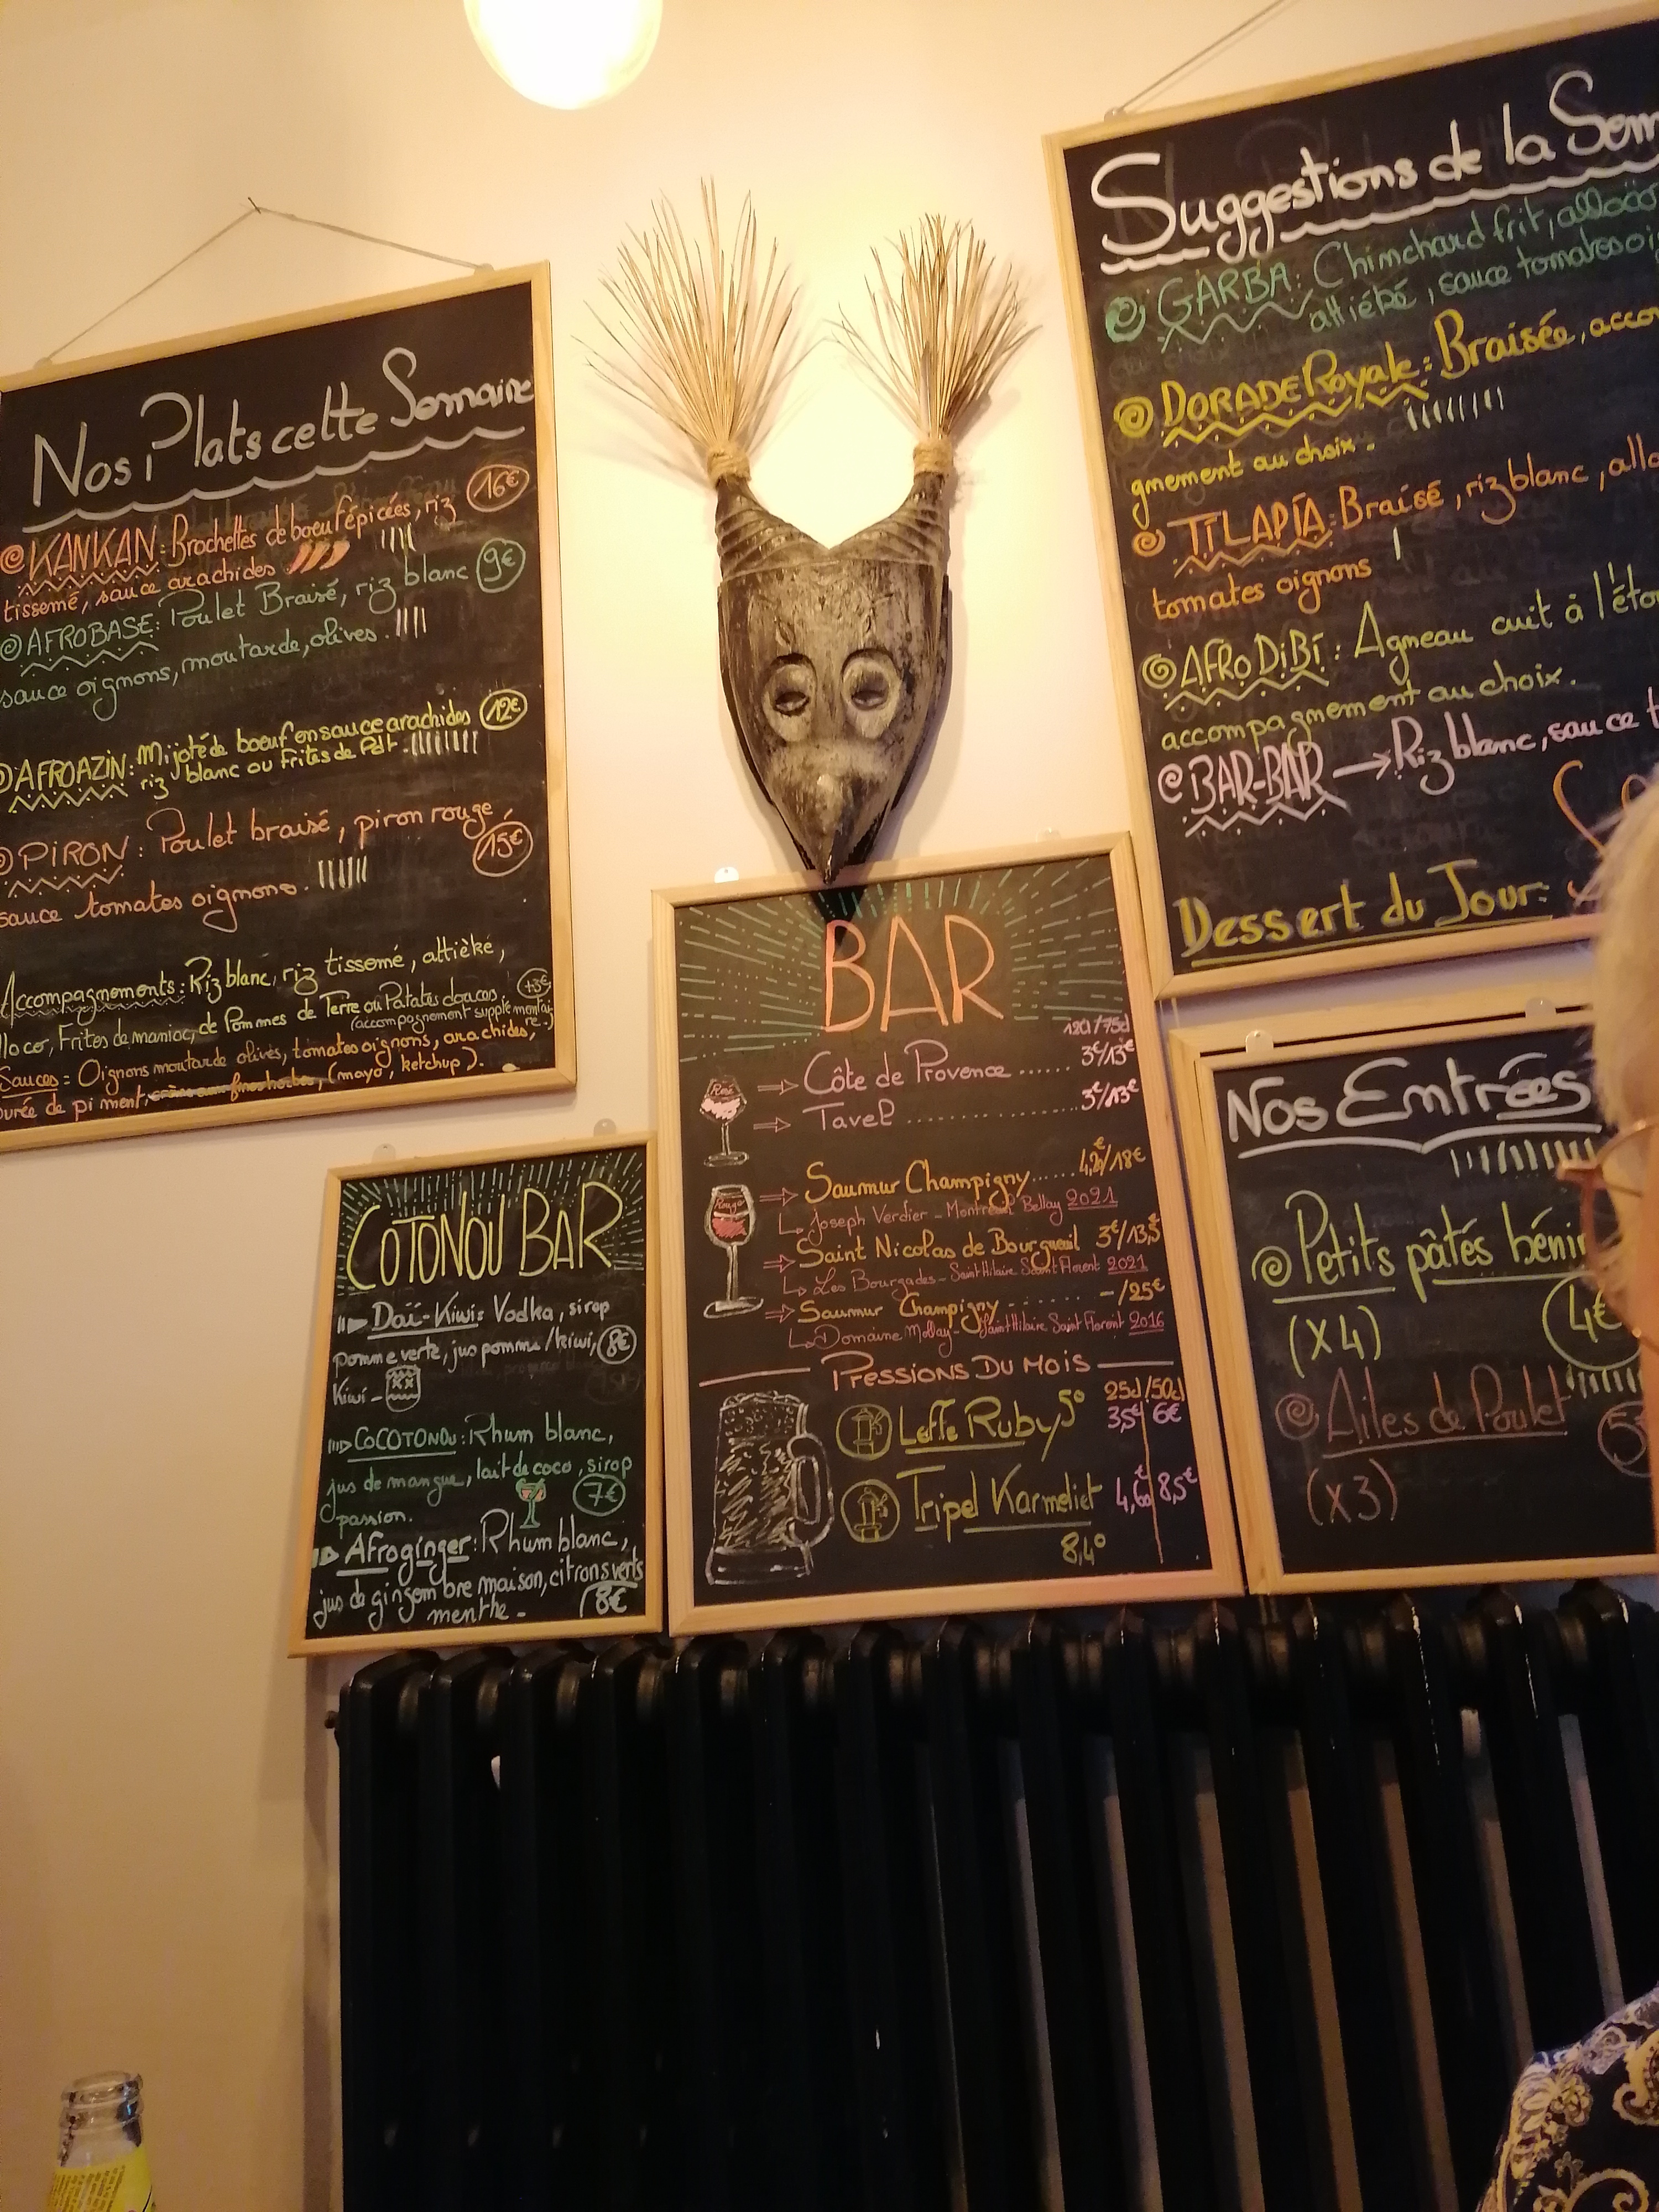 Nos Plats cette Semaine
KANKAN: Brochettes de boeuf épicées, riz 16€
tissemé, sauce arachides
AFROBASE: Poulet Braisé, riz blanc 9€
sauce oignons, moutarde, olives.
AFROAZIN: Mijoté de boeuf en sauce arachides 12€
riz blanc ou Frites de Pdt.
PIRON: Poulet braisé, piron rouge, 15€
sauce tomates oignons.
Accompagnements: Riz blanc, riz tissemé, attièkè,
lloco, Frites de manioc, de Pommes de Terre ou Patates douces, +3€
(accompagnement supplémentaire.)
Sauces = Oignons moutarde olives, tomates oignons, arachides,
purée de piment, (mayo, ketchup).
COTONOU BAR
Daï-Kiwi: Vodka, sirop
pomme verte, jus pomme/kiwi, 8€
Kiwi -
COCOTONOU: Rhum blanc,
jus de mangue, lait de coco, sirop
passion. 7€
Afroginger: Rhum blanc,
jus de gingembre maison, citrons verts
menthe - 8€
BAR
12cl/75cl
Rosé
Côte de Provence ...... 3€/13€
Tavel ...... 3€/13€
Rouge
Saumur Champigny ...... 4,20€/18€
Joseph Verdier - Montreuil Bellay 2021
Saint Nicolas de Bourgueil 3€/13,5€
Les Bourgades - Saint Hilaire Saint Florent 2021
Saumur Champigny ........ -/25€
Saint Hilaire Saint Florent 2016
PRESSIONS DU MOIS
25cl/50cl
Leffe Ruby 5° 3,5€ 6€
Tripel Karmeliet 4,60€ 8,5€
8,4°
Suggestions de la Sem
GARBA: Chinchard frit, alloco
attiéké, sauce tomates oi
DORADE Royale: Braisée, accom
gnement au choix.
TILAPIA: Braisé, riz blanc, allo
tomates oignons
AFRODIBI: Agneau cuit à l'éto
accompagnement au choix.
BAR-BAR → Riz blanc, sauce t
Dessert du Jour:
Nos Entrées
Petits pâtés bénin
(x4) 4€
Ailes de Poulet
(x3) 5